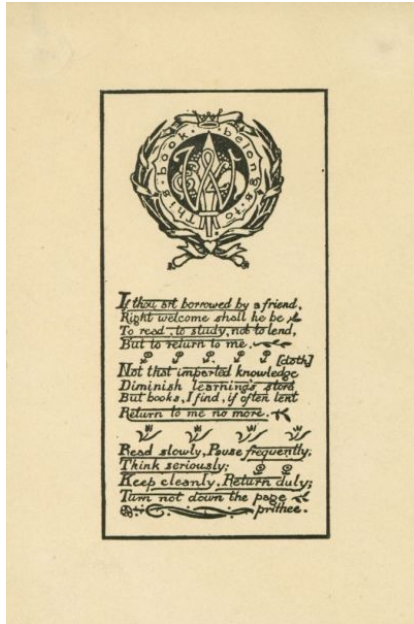 This · book · belongs · to ·
If thou art borrowed by a friend,
Right welcome shall he be
To read, to study, not to lend,
But to return to me.
[doth]
Not that imparted knowledge
Diminish learning's store
But books, I find, if often lent
Return to me no more.
Read slowly, Pause frequently,
Think seriously;
Keep cleanly, Return duly;
Turn not down the page
prithee.